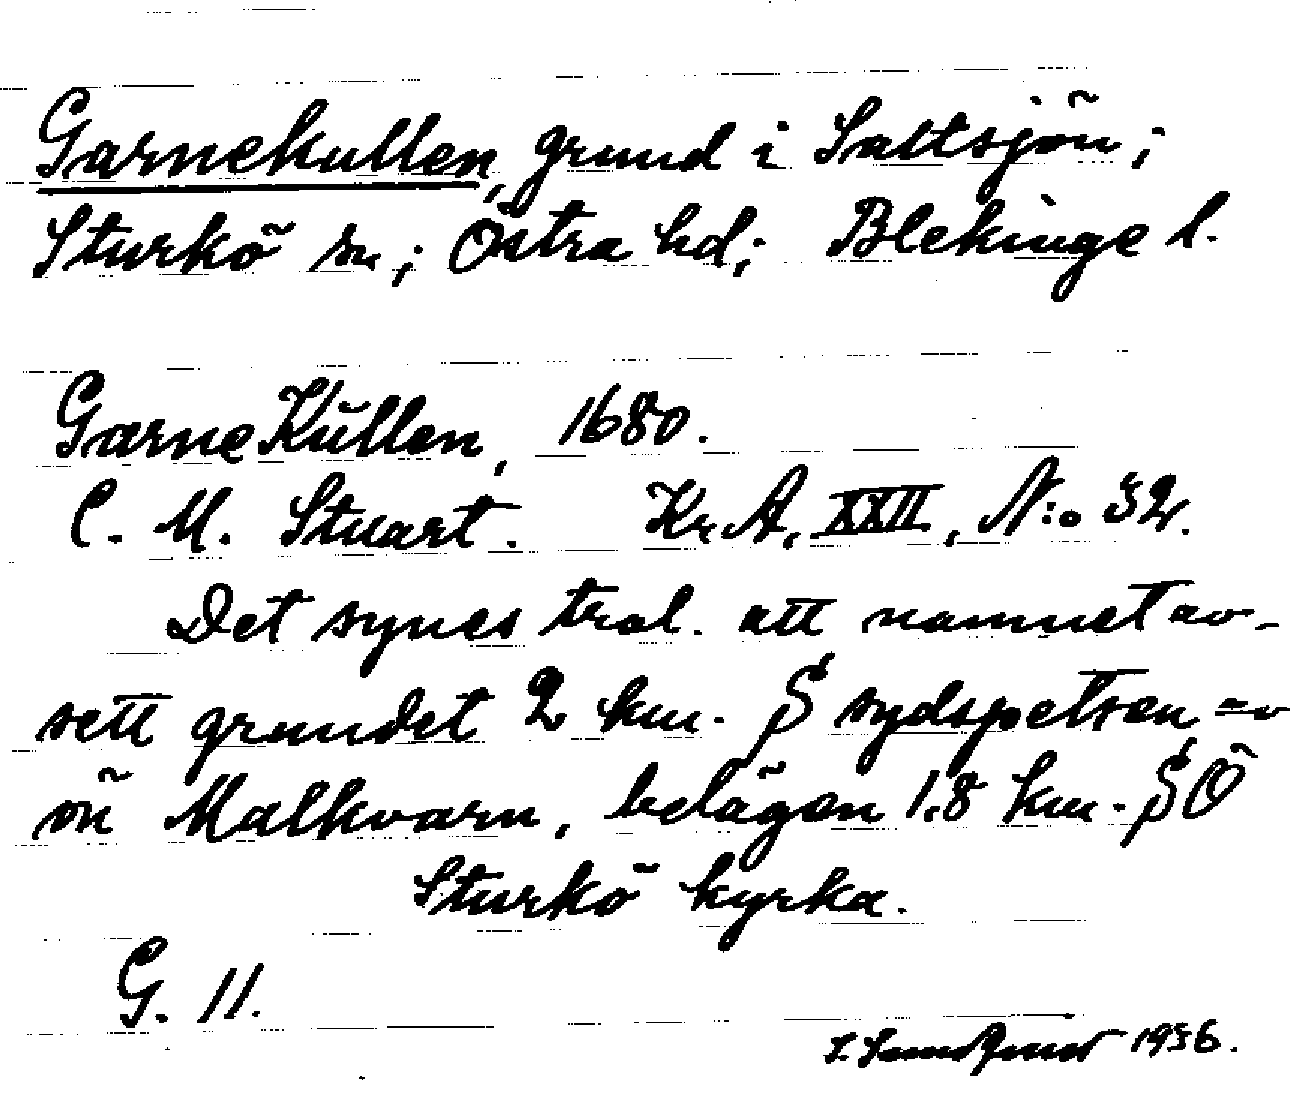 Garnekullen, grund i Saltsjön;
Sturkö sn; Östra hd; Blekinge l.
GarneKŭllen, 1680.
C. M. Stuart. Kr. A, XXII, N:o 32.
Det synes trol. att namnet av-
sett grundet 2 km. S sydspetsen av
ön Malkvarn, belägen 1.8 km. SÖ
Sturkö kyrka.
G. 11.
1956.